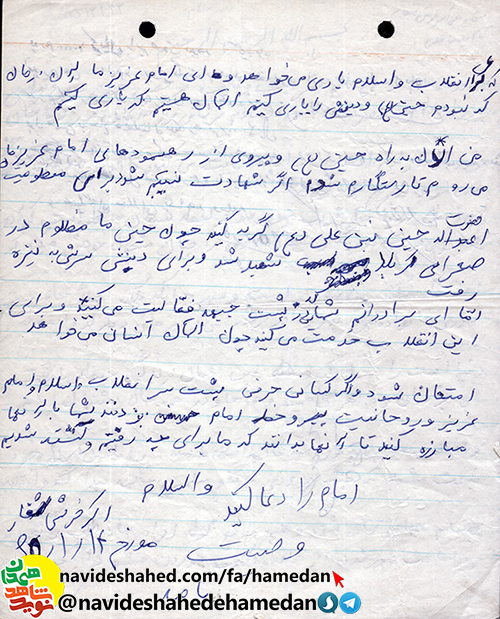 که برای انقلاب و اسلام یاری می‌خواهد و ای امام عزیز ما
کند شود حتماً وی را یاری کنید الان هستیم که یاری کنیم
من الان به راه حسین (ع) و پیروی از رهنمودهای امام عزیزمان
می‌روم تا رستگار شوم اگر شهادت نصیبم شود برای مظلومیت
حضرت
اعبدالله حسین بن علی (ع) گریه کنید چون حسین ما مظلوم در
صحرای کربلا شهید شد و برای دینش سرش به نیزه
رفت
امّا ای برادرانم شمائی که در پشت جبهه فعّالیت می‌کنید و برای
این انقلاب خدمت می‌کنید چون الان آسانی می‌خواهد
امتحان شود و اگر کسانی حرفی پشت سر انقلاب و اسلام و امام
عزیز و روحانیت پیرو خط امام زدند شما با آنها
مبارزه کنید تا آنها بدانند که ما برای چه رفتیم و کشته شدیم
امام را دعا کنید والسلام
اکبر
وصیت مورخ
navideshahed.com/fa/hamedan
@navideshahedehamedan
نوید شاهد همدان